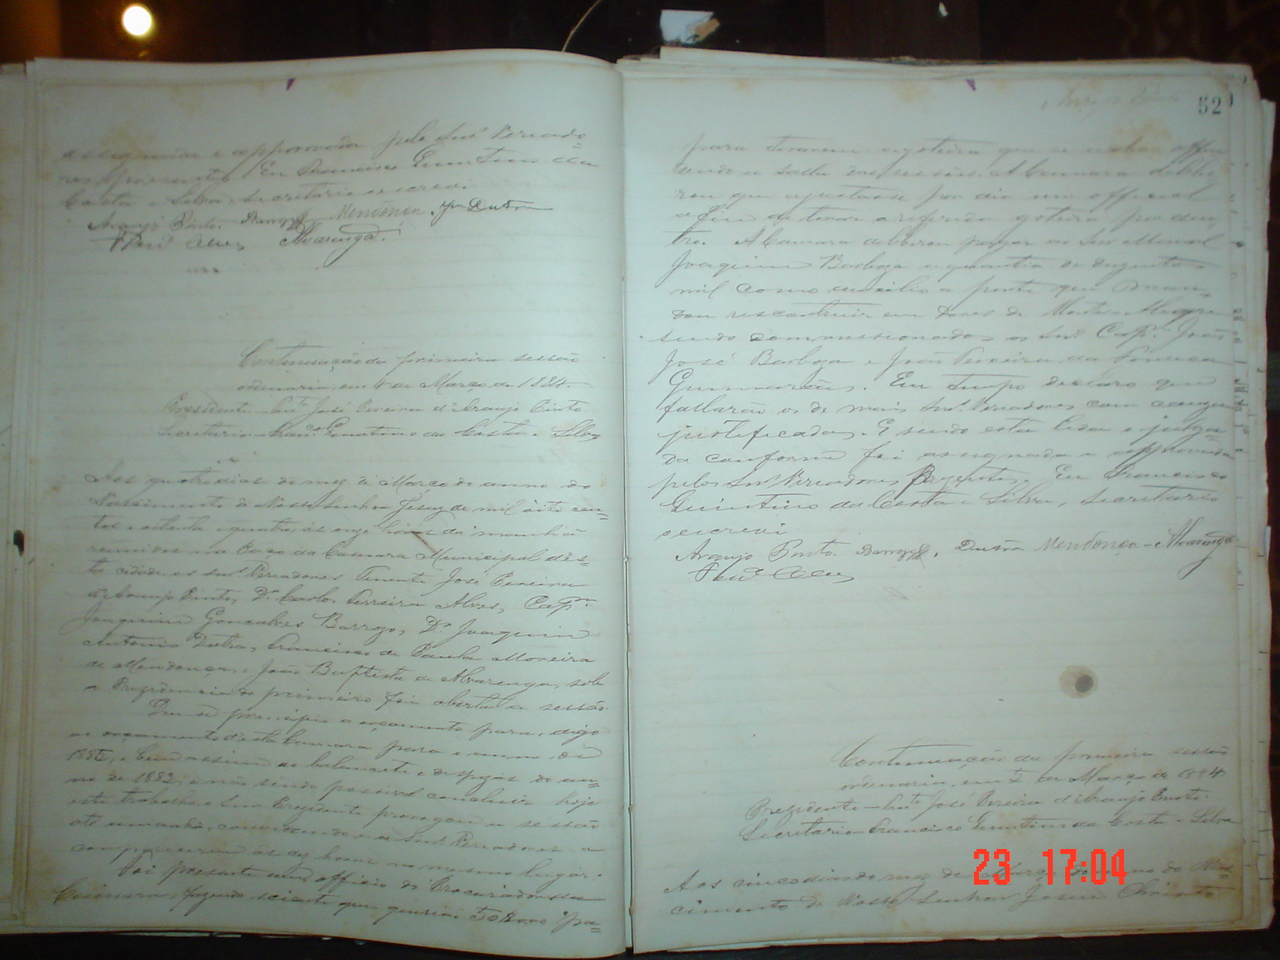 assignada e approvada pelos Snrs. Vereado=
res presentes. Eu Francisco Quintino da
Costa e Silva, secretario escrevi
Araujo Pinto. Barroso Mendonça. Dutra
Alvarenga.
Continuação da primeira sessão
ordinaria, em 4 de Março de 1884.
Presidente José Pereira d'Araujo Pinto
Secretario Quintino da Costa e Silva
Aos quatro dias do mez de Março do anno do
Nascimento de Nosso Senhor Jesus de mil oito cen=
tos e oitenta e quatro, ás onze horas da manhã
reunidos no Paço da Camara Municipal d'es=
ta cidade os Snrs. Vereadores Tenente José Pereira
d'Araujo Pinto, Dr. Carlos Ferreira Alves, Capm.
Joaquim Gonçalves Barroso, Dr. Joaquim
Antonio Dutra, Francisco de Paula Moreira
de Mendonça, e João Baptista de Alvarenga, sob
a Presidencia do primeiro foi aberta a sessão.
Deu-se principio o orçamento para, digo
ao orçamento d'esta Camara para o anno de
1885, e bem assim ao balancete e despezas do an=
no de 1883, e não sendo possivel concluir hoje
este trabalho, o Snr. Presidente prorogou a sessão
até amanhã, convidando aos Snrs. Vereadores a
comparecerem ás dez horas no mesmo lugar.
Foi presente um officio do Procurador da
Camara, fazendo sciente que queriao 50$000 pa=
52
para tirarem a goteira que se acha offen
dendo a salla das sessões. A Camara delibe
rou que ajustasse por dia um official
afim de tirar a referida goteira por den
tro. A Camara deliberou pagar ao Snr. Manoel
Joaquim Barboza a quantia de duzentos
mil como auxilio a ponte que man
dou reconstruir em Dores do Monte Alegre
sendo commissionados os Snrs. Capm. João
José Barboza e João Pereira da Fonseca
Guimarães. Em tempo declaro que
faltarão os de mais Snrs. Vereadores com cauza
justificada. E sendo esta lida e julga=
da conforme foi assignada e approvada
pelos Snrs. Vereadores Prezentes. Eu Francisco
Quintino da Costa e Silva, secretario
escrevi
Araujo Pinto. Barroso. Dutra Mendonça - Alvarenga
Continuação da primeira sessão
ordinaria, em 5 de Março de 1884
Prezidente José Pereira d'Araujo Pinto
Secretario Francisco Quintino da Costa e Silva
Aos cinco dias do mez de Março do anno do Nas=
cimento de Nosso Senhor Jesus Christo
23 17:04